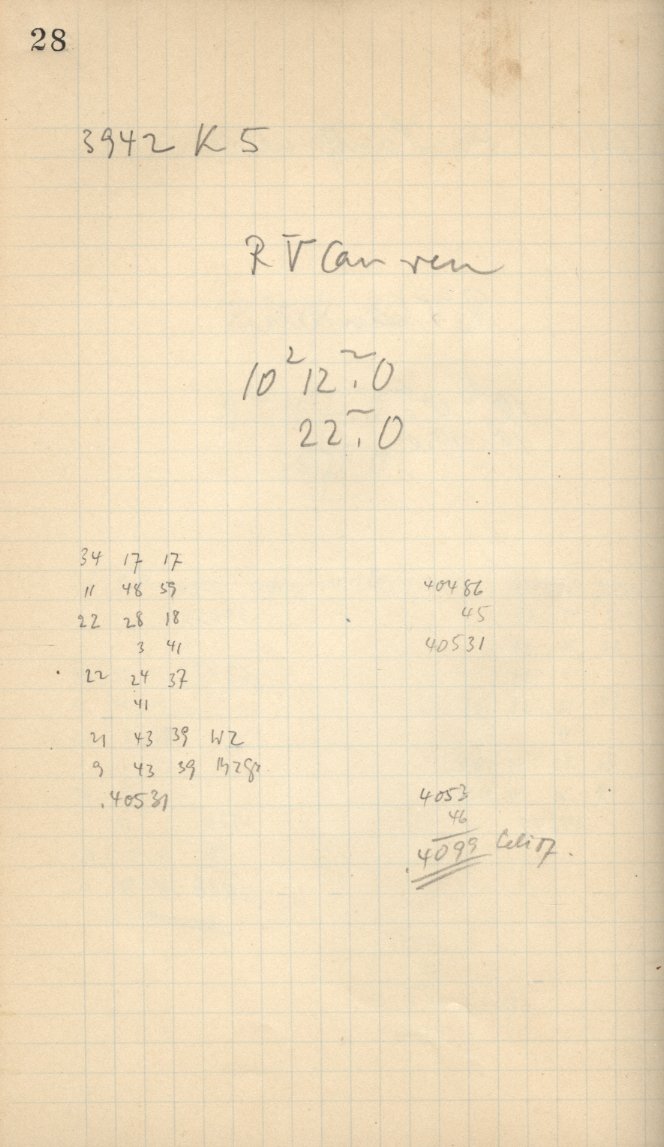 28
3942 K 5
R V Can ven
10² 12.0
22.0
34 17 17
11 48 39
22 28 18
3 41
22 24 37
41
21 43 39 WZ
9 43 39
.40531
40486
45
40531
4053
46
.4099